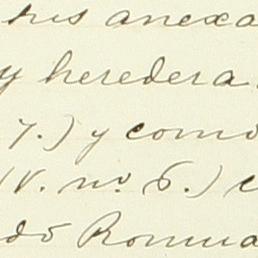 tris anexa
y heredera
7.) y como
(V. no. 6.) c
do Romua